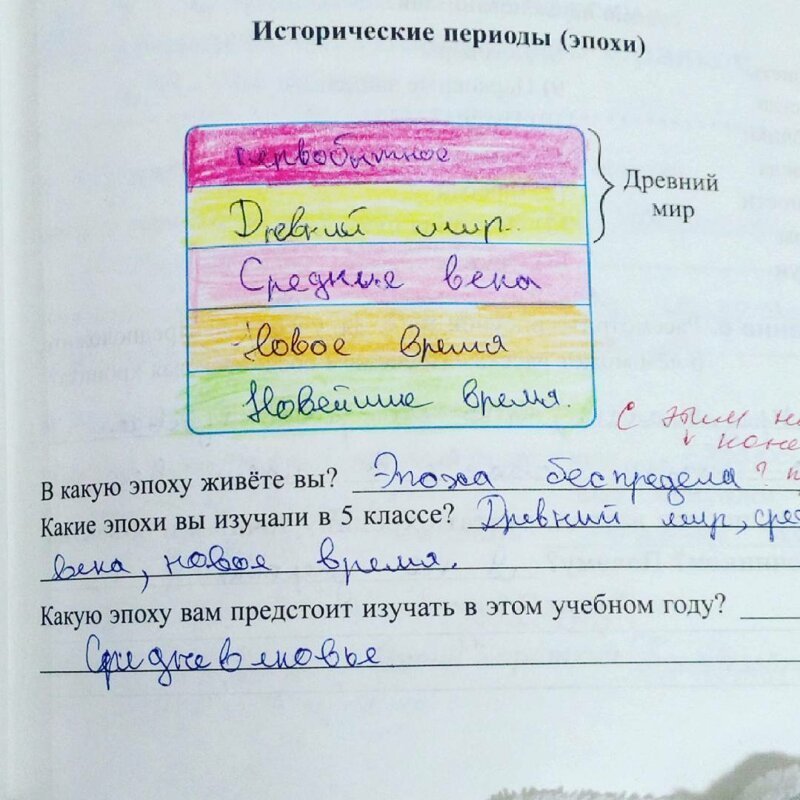 Исторические периоды (эпохи)
первобытное
Древний мир.
Древний
мир
Средние века
Новое время
Новейшие время.
С этим не
коне
В какую эпоху живёте вы? Эпоха беспредела ?
Какие эпохи вы изучали в 5 классе? Древний мир, сре
века, новое время.
Какую эпоху вам предстоит изучать в этом учебном году?
Средневековье